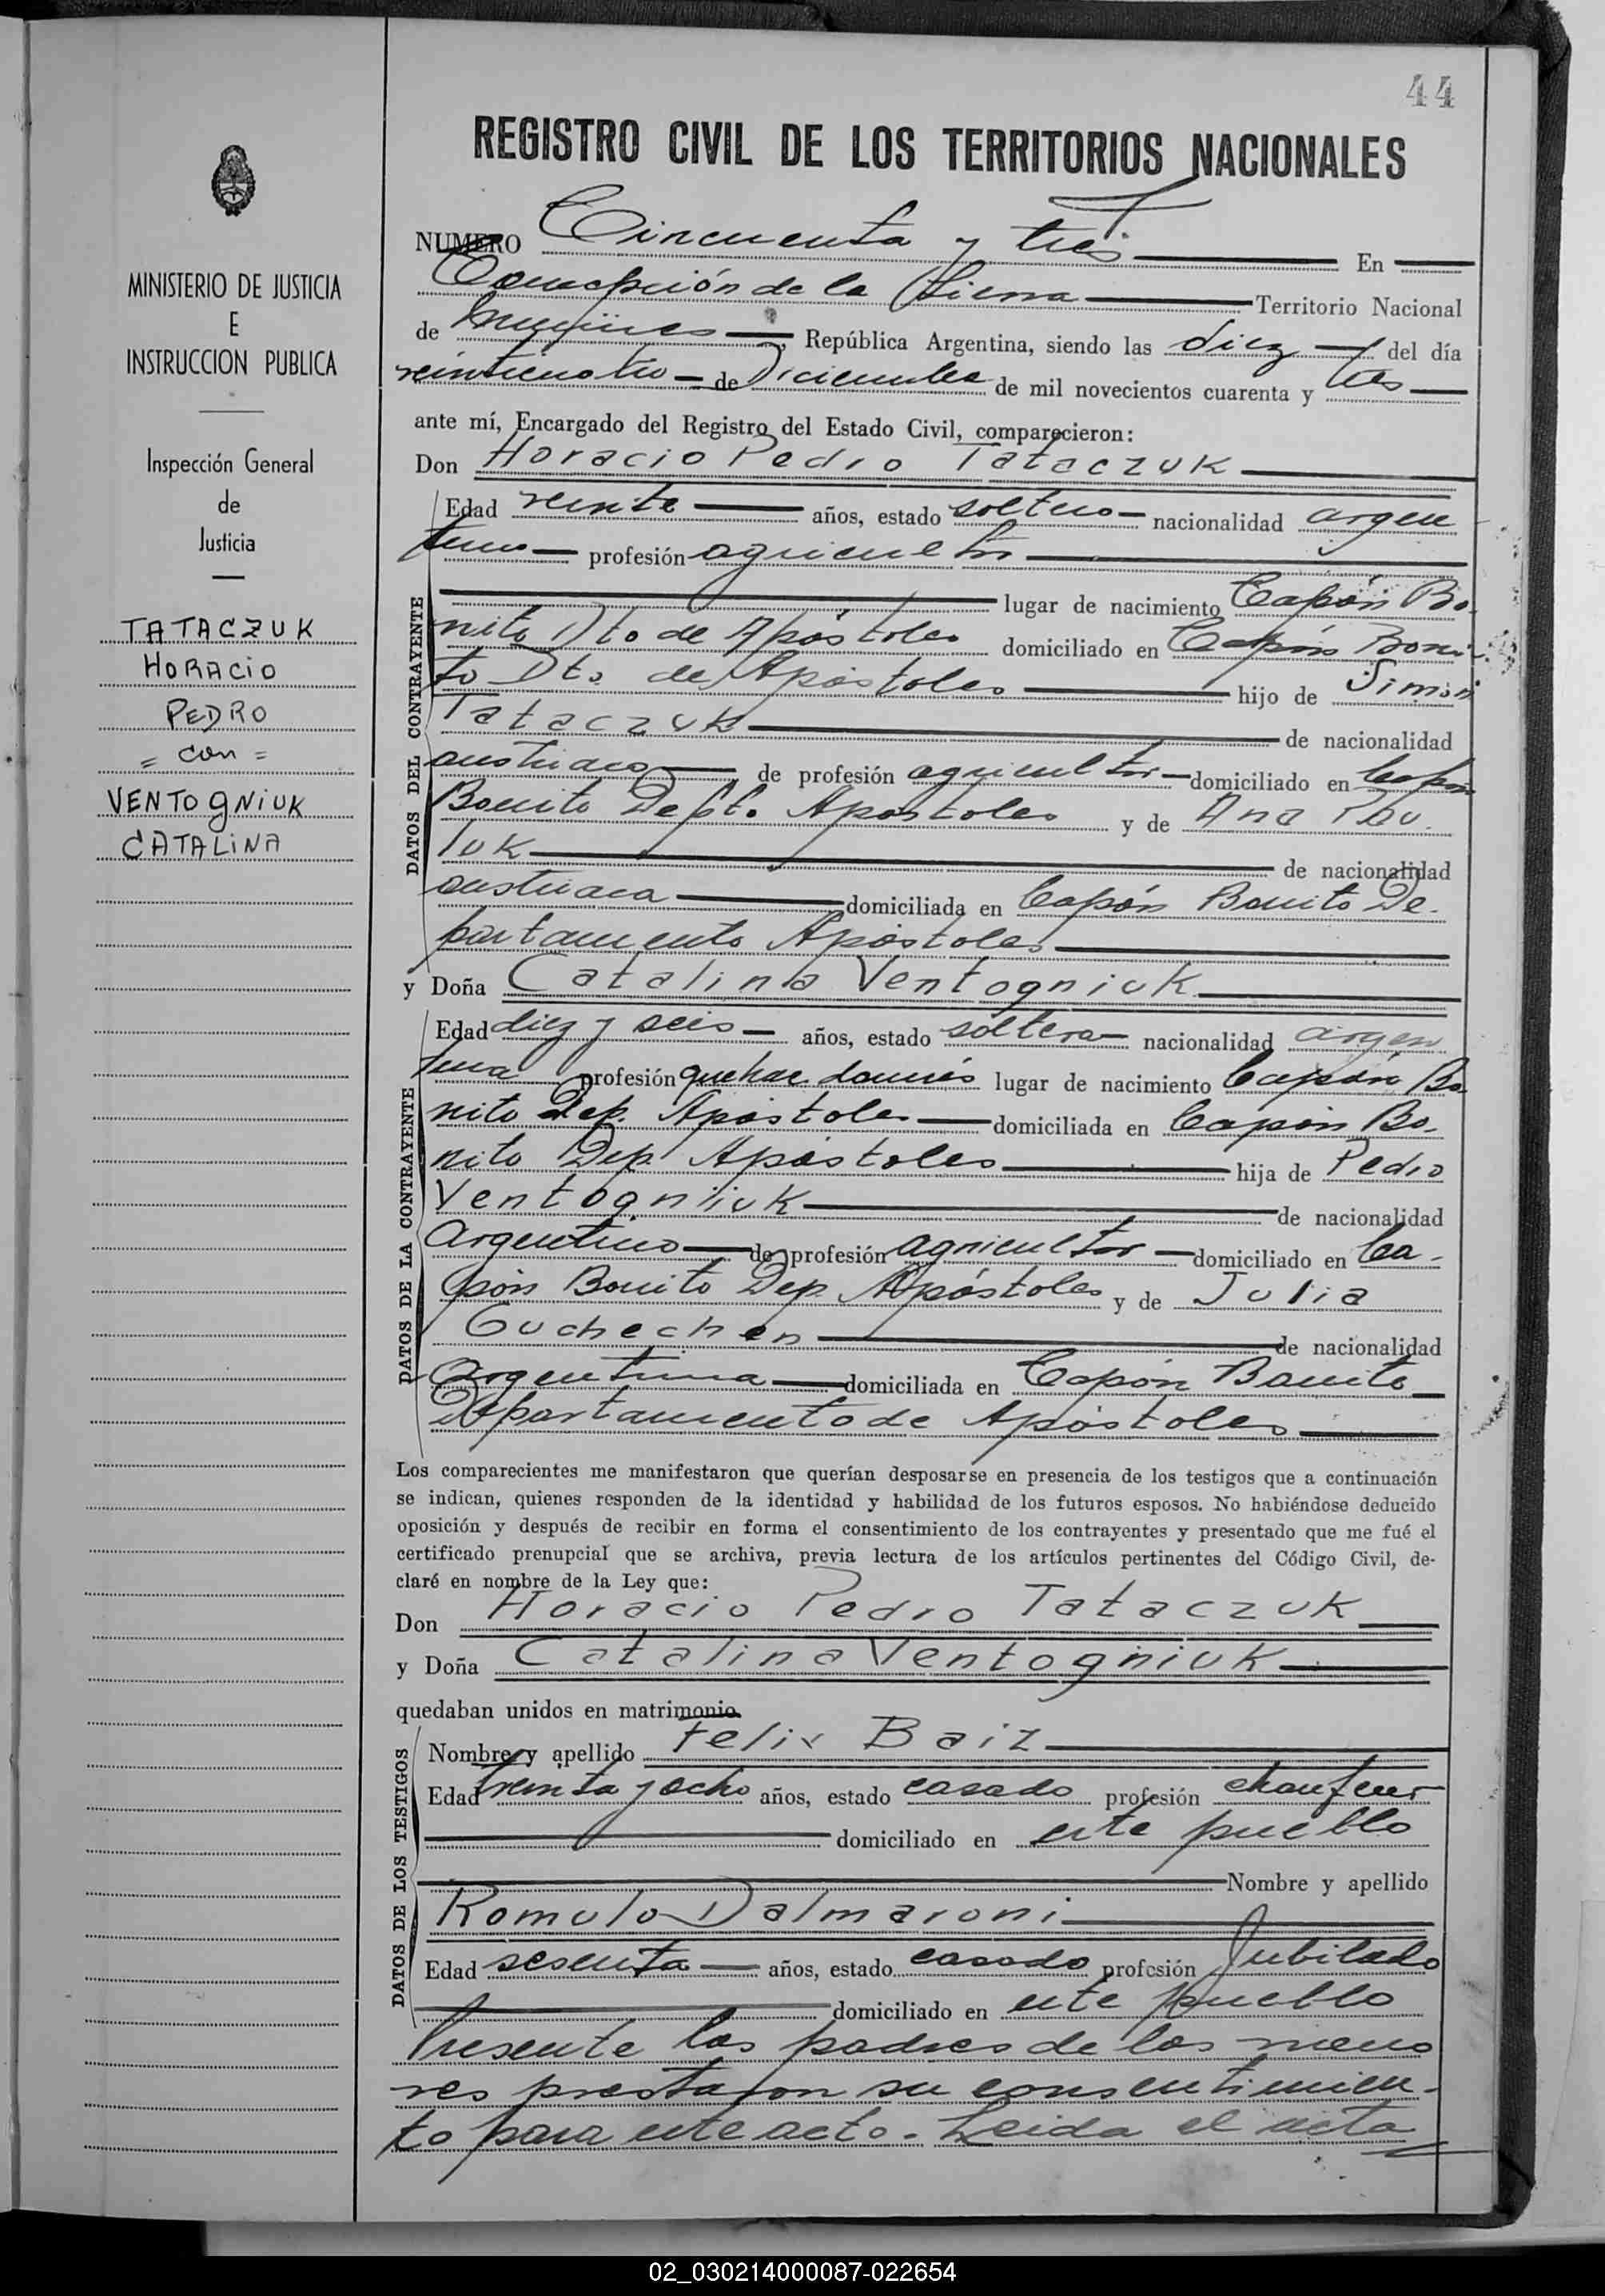 44
REGISTRO CIVIL DE LOS TERRITORIOS NACIONALES
MINISTERIO DE JUSTICIA
E
INSTRUCCION PUBLICA
Inspección General
de
Justicia
TATACZUK
HORACIO
PEDRO
= con =
VENTOGNIUK
CATALINA
NUMERO Cincuenta y tres En
Concepción de la Sierra Territorio Nacional
de Misiones, República Argentina, siendo las diez del día
veinticuatro de Diciembre de mil novecientos cuarenta y tres
ante mí, Encargado del Registro del Estado Civil, comparecieron:
Don Horacio Pedro Tataczuk
DATOS DEL CONTRAYENTE
Edad veinte años, estado soltero nacionalidad argen
tino profesión agricultor
lugar de nacimiento Capón Bo-
nito Dto de Apóstoles domiciliado en Capón Boni-
to Dto. de Apóstoles hijo de Simón
Tataczuk de nacionalidad
austriaco de profesión agricultor domiciliado en Capón
Bonito Depto. Apóstoles y de Ana Pau-
luk de nacionalidad
austriaca domiciliada en Capón Bonito De-
partamento Apóstoles
y Doña Catalina Ventogniuk
DATOS DE LA CONTRAYENTE
Edad diez y seis años, estado soltera nacionalidad argen
tina profesión quehac domés lugar de nacimiento Capón Bo-
nito Dep. Apóstoles domiciliada en Capón Bo-
nito Dep. Apóstoles hija de Pedro
Ventogniuk de nacionalidad
Argentino de profesión agricultor domiciliado en Ca-
pón Bonito Dep. Apóstoles y de Julia
Guchechen de nacionalidad
argentina domiciliada en Capón Bonito
Departamento de Apóstoles
Los comparecientes me manifestaron que querían desposarse en presencia de los testigos que a continuación
se indican, quienes responden de la identidad y habilidad de los futuros esposos. No habiéndose deducido
oposición y después de recibir en forma el consentimiento de los contrayentes y presentado que me fué el
certificado prenupcial que se archiva, previa lectura de los artículos pertinentes del Código Civil, de-
claré en nombre de la Ley que:
Don Horacio Pedro Tataczuk
y Doña Catalina Ventogniuk
quedaban unidos en matrimonio
DATOS DE LOS TESTIGOS
Nombre y apellido Felix Baiz
Edad treinta y ocho años, estado casado profesión chaufeur
domiciliado en este pueblo
Nombre y apellido
Romulo Dalmaroni
Edad sesenta años, estado casado profesión Jubilado
domiciliado en este pueblo
Presente los padres de los meno
res prestaron su consentimien-
to para este acto. Leida el acta
02_030214000087-022654